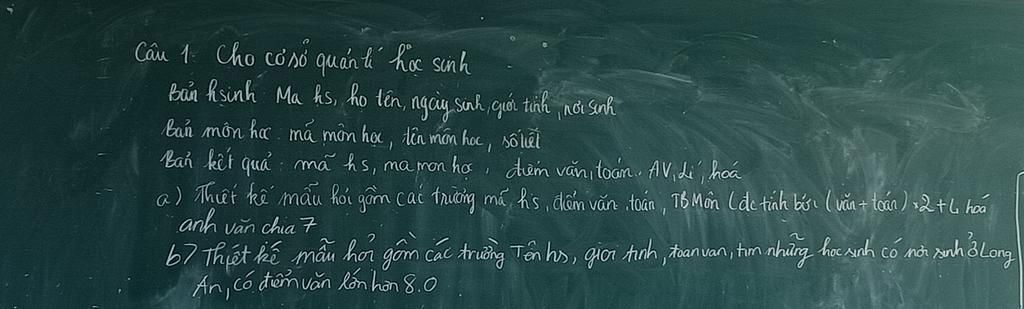 Câu 1: Cho cơ sở quản lí học sinh
Bản hsinh: Ma hs, ho tên, ngày sinh, giới tính, nơi sinh
Bản môn học: mã môn học, tên môn học, số tiết
Bản kết quả: mã hs, ma mon họ, điểm văn, toán, AV, Lí, hoá
a) Thiết kế mẫu hỏi gồm các trường mã hs, điểm văn, toán, TB Môn (đc tính bởi: (văn + toán) x2 + L hoá
anh văn chia 7
b) Thiết kế mẫu hỏi gồm các trường Tên hs, giơi tính, toan van, tìm những học sinh có nơi sinh ở Long
An, có điểm văn lớn hơn 8.0